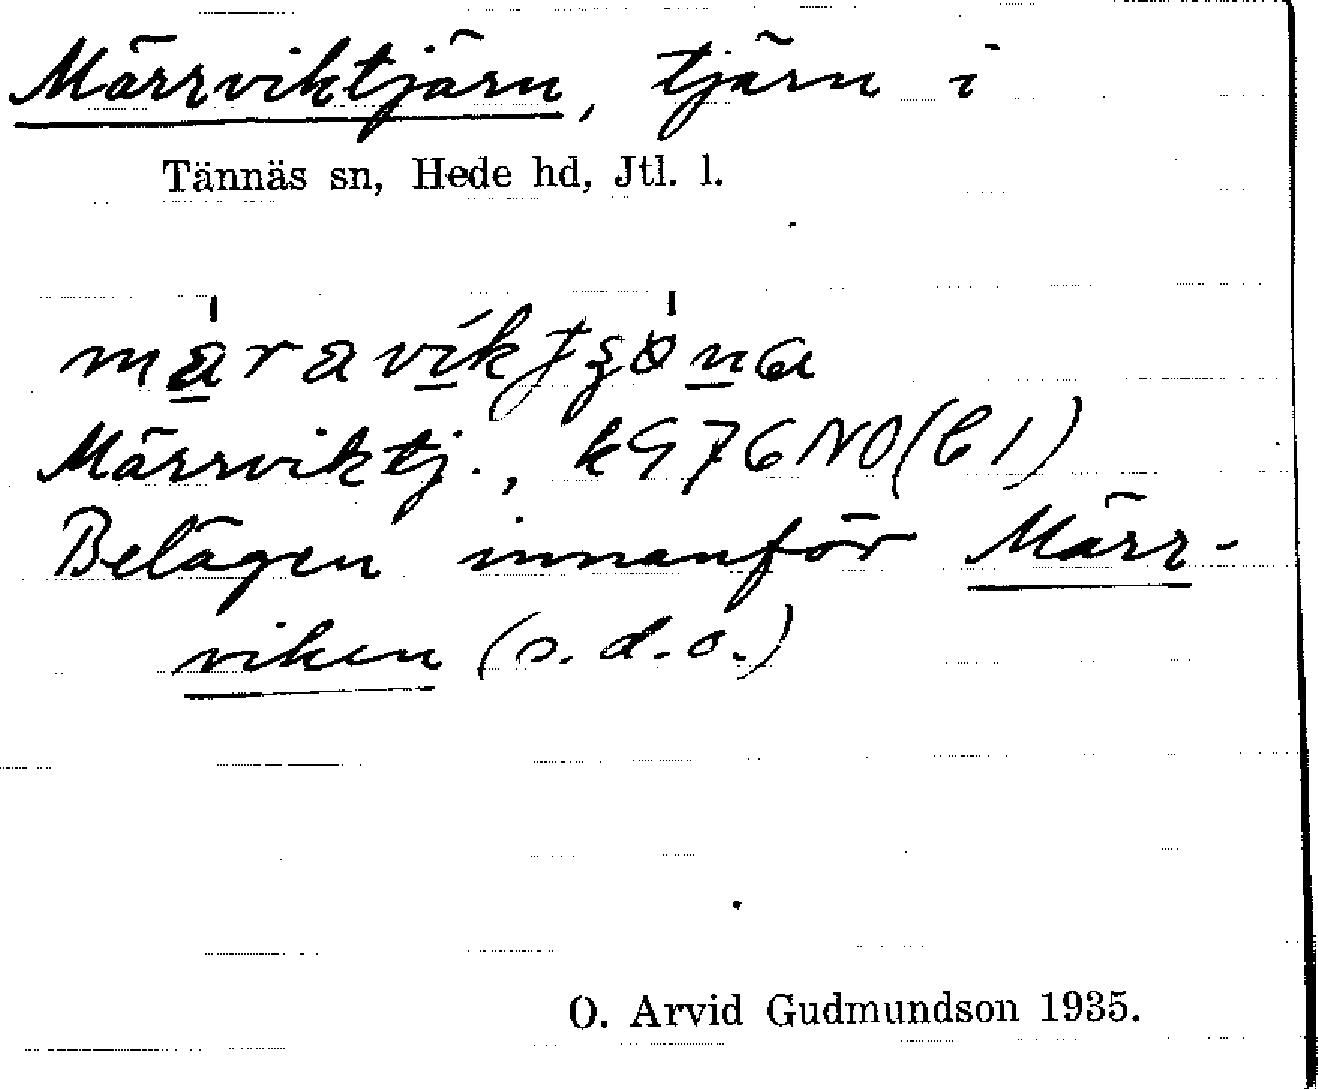 Märrviktjärn, tjärn i
Tännäs sn, Hede hd, Jtl. l.
Märrviktj., k976NO(b1)
Belägen innanför Märr-
viken (s.d.o.)
O. Arvid Gudmundson 1935.